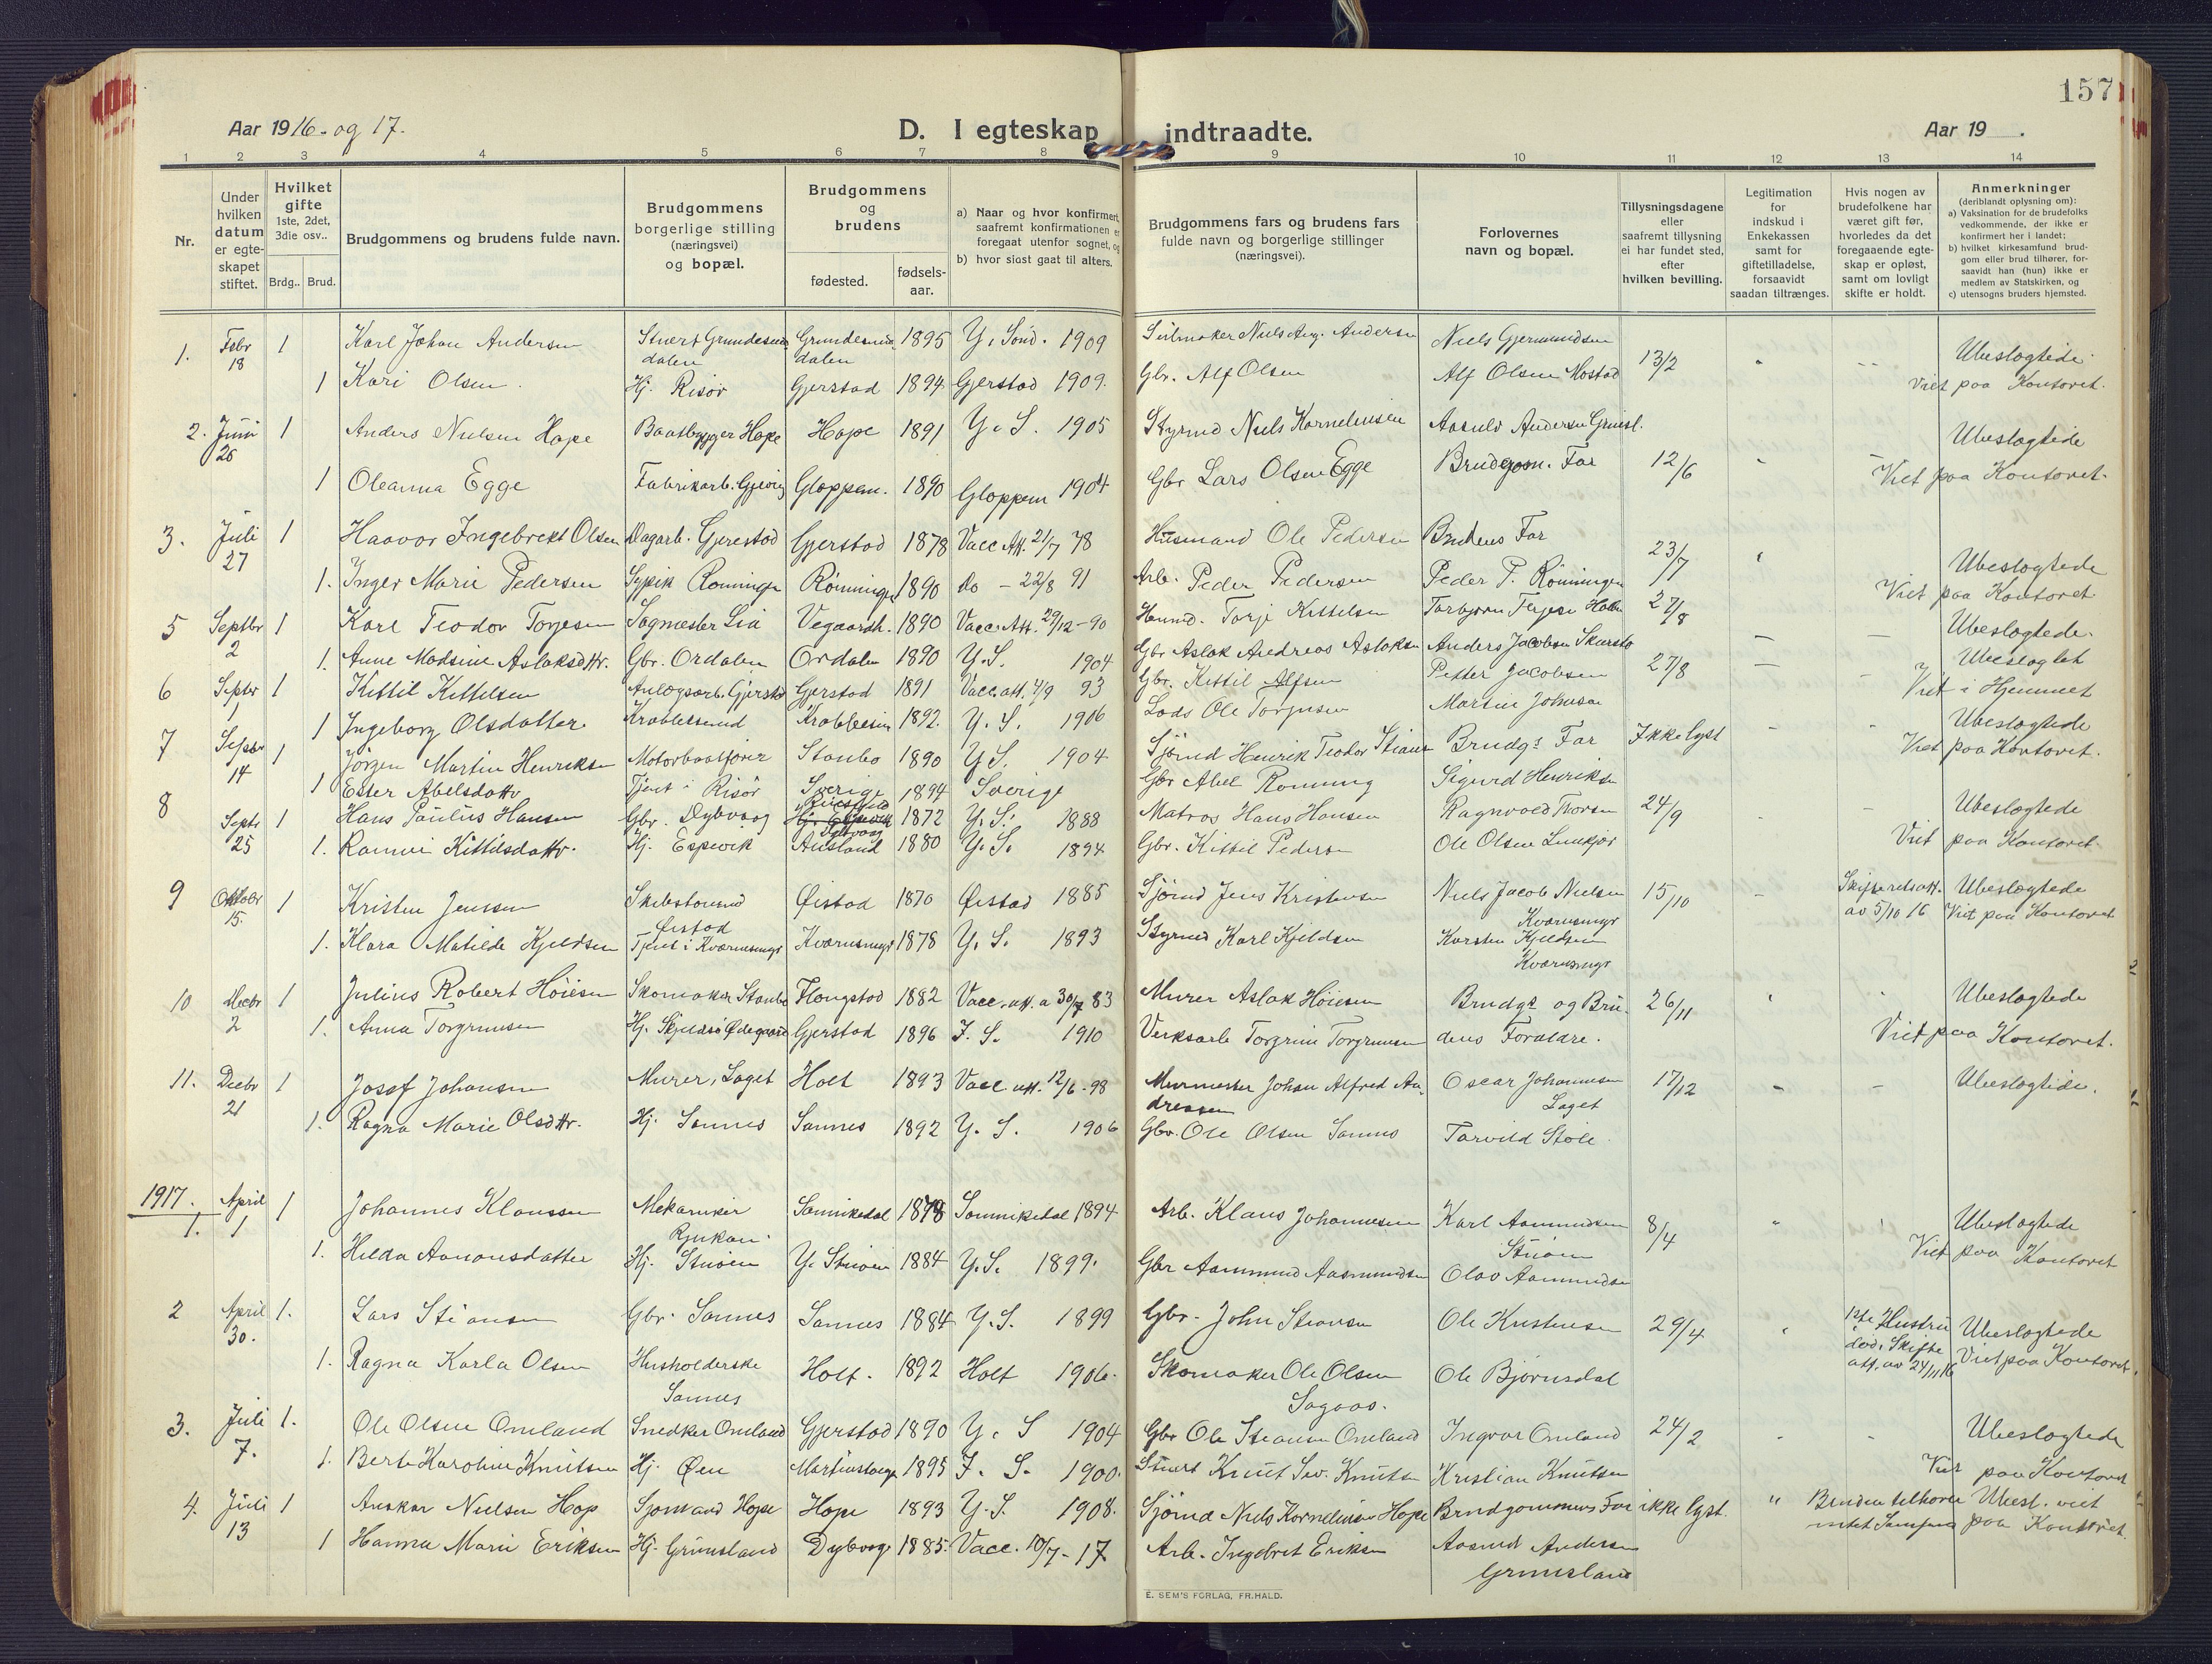 157
Aar 1916. og 17.
D. I egteskap indtraadte.
Aar 19 .
1 2 3 4 5 6 7 8 9 10 11 12 13 14
Nr.
Under hvilken datum er egte-skapet stiftet.
Hvilket gifte 1ste, 2det, 3die osv..
Brdg.. Brud.
Brudgommens og brudens fulde navn.
Brudgommens borgerlige stilling (næringsvei) og bopæl.
Brudgommens og brudens
fødested. fødsels-aar.
a) Naar og hvor konfirmert, saafremt konfirmationen er foregaat utenfor sognet, og
b) hvor sidst gaat til alters.
Brudgommens fars og brudens fars fulde navn og borgerlige stillinger (næringsvei).
Forlovernes navn og bopæl.
Tillysningsdagene eller saafremt tillysning ei har fundet sted, efter hvilken bevilling.
Legitimation for indskud i Enkekassen samt for giftetilladelse, forsaavidt saadan tiltrænges.
Hvis nogen av brudefolkene har været gift før, hvorledes da det foregaaende egte-skap er opløst, samt om lovligt skifte er holdt.
Anmerkninger (deriblandt oplysning om):
a) Vaksination for de brudefolks vedkommende, der ikke er konfirmert her i landet;
b) hvilket kirkesamfund brud-gom eller brud tilhører, for-saavidt han (hun) ikke er medlem av Statskirken, og
c) utensogns bruders hjemsted.
1. Febr 18 1 Karl Johan Andersen 1895 Y. Sønd. 1909 Niels Gjermundsen 13/2 Ubeslægtede
1 Kari Olsen. Hj. Risør Gjerstad 1894 Gjerstad 1909. Gbr. Alf Olsen Alf Olsen Mostad Viet paa Kontoret.
2. Juni 26 1 Anders Nielsen Hope Baatbygger Hope Hope 1891 Y. S. 1905 Styrmd Niels Kornelinsen 12/6 Ubeslægtede
1 Oleanna Egge Fabrikarb. Gjøvig Gloppen. 1890 Gloppen 1904 Gbr Lars Olsen Egge Brudgom. Far Viet paa Kontoret.
3. Juli 27 1 Haavor Ingebrekt Olsen Dagarb. Gjerestad Gjerstad 1878 Vacc. Att. 21/7 78 Husmand Ole Pedersen Brudens Far 23/7 Ubeslægtede
1. Inger Marie Pedersen Sypik Rønningen Rønningen 1890 do - 22/8 91 Arb. Peder Pedersen Peder P. Rønningen Viet paa Kontoret
5 Septbr 2 1 Karl Teodor Torjesen Sagmester Lia Vegaardh. 1890 Vacc. Att. 29/12-90 Husmd. Torje Kittelsen 27/8 Ubeslægtede.
1. Anne Madsine Aslaksdttr. Gbr. Ordalen Ordalen 1890 Y.S. 1904 Gbr Aslak Andreas Aslaksen Anders Jacobsen
6 Septbr 1 1 Kittil Kittelsen Anlægsarb. Gjerstad Gjerstad 1891 Vacc. att. 4/9 93 Gbr. Kittil Alfsen Petter Jacobsen 27/8 Ubeslægtet Viet i Hjemmet
1 Ingeborg Olsdatter. 1892. Y. S. 1906 Lods Ole Torjusen Martin Johnsen
7 Septbr 14 1 Jørgen Martin Henriksen Motorbaatfører Stanbo 1890 Y S. 1904 Sjømd Henrik Teodor Stiansen Brudgs Far Ikke lyst Ubeslægtede Viet paa Kontoret.
1 Ester Abelsdattr Tjent i Risør Sverige 1894 Sverige Gbr Abel Rønning Sigurd Henriksen
8 Septr 25 1 Hans Paulus Hansen Gbr. Dybvaag Dybvaag 1872 Y. S. 1888 Matros Hans Hansen Ragnvald Thorsen 24/9 Ubeslægtede
1. Kittilsdattr. Hj. Espevik Ausland 1880 Y. S. 1894 Gbr. Kittil Pedersen Ole Olsen Viet paa Kontoret
9 Oktobr 15. 1 Kristen Jenssen Skibstømmd Øistad Øistad 1870 Øistad 1885 Sjømd Jens Kristensen Niels Jacob Nielsen Kværnsmyr 15/10 Skifteretsatt. av 5/10 16 Ubeslægtede Viet paa Kontoret
1. Klara Matilde Kjeldsen Tjent i Kværnsmyr Kværnsmyr 1878 Y. S. 1893 Styrmd Karl Kjeldsen Karsten Kjeldsen Kværnsmyr
10 Decbr 2 1 Julius Robert Høiesen Skomaker Stanbo Flougstad 1882 Vacc. att. a 30/7 83 Murer Aslak Høiesen Brudgs og Bru- 26/11 Ubeslægtede
1. Anna Torgrimsen Hj. Ødegaard Gjerstad 1896 I. S. 1910 Verksarb Torgrim Torgrimsen dens Forældre. Viet paa Kontoret.
11. Decbr 21 1 Josef Johansen Murer, Laget Holt 1893 Vacc att. 12/6-98 Murmester Johan Alfred An-dreasen Oscar Johannesen Laget 17/12 Ubeslægtede.
1. Ragna Marie Olsdttr. Hj. Sannes Sannes 1892 Y. S. 1906 Gbr. Ole Olsen Sannes Torvild Støle
1917.
1. April 1 1 Johannes Klaussen Mekaniker Rjukan Sannikedal 1878 Sannikedal 1894 Arb. Klaus Johannesen Karl Aamundsen 8/4 Ubeslægtede
1. Hilda Aanonsdatter Hj. 1884 Y.S. 1899. Gbr Aammund Aasmundsen Olav Aamundsen Viet paa Kontoret
2 April 30. 1. Lars Stiansen Gbr. Sannes Sannes 1884 Y.S. 1899 Gbr. John Stiansen Ole Kristensen 29/4 1ste Hustru død. Skifte att. av 24/11 16 Ubeslægtede Viet paa Kontoret.
1. Ragna Karla Olsen Husholderske Sannes Holt. 1892 Holt 1906. Skomaker Ole Olsen Sagaas. Ole Bjørnsdal
3. Juli 7. 1. Ole Olsen Omland Snedker Omland Gjerstad 1890 Y. S 1904 Gbr Ole Stiansen Omland Ingvar Omland 24/2 Ubeslægtede
1. Berte Karoline Knutsen Hj. Øen 1895 I. S. 1900. Knut Sev. Knutsen Kristian Knutsen Viet paa Kontoret
4. Juli 13 1 Anskar Nielsen Hop Sjømand Hope Hope 1893 Y.S. 1908. Sjømd Niels Kornelinsen Hope Brudgommens Far ikke lyst. " Bruden tilhører intet Samfund Ubesl. viet paa Kontoret.
1 Hanna Marie Eriksen Hj. Grimsland Dybvag 1885. Vacc. 10/7-17 Arb. Ingebret Eriksen Aasmd Andersen Grimsland
E. SEM'S FORLAG, FR.HALD.